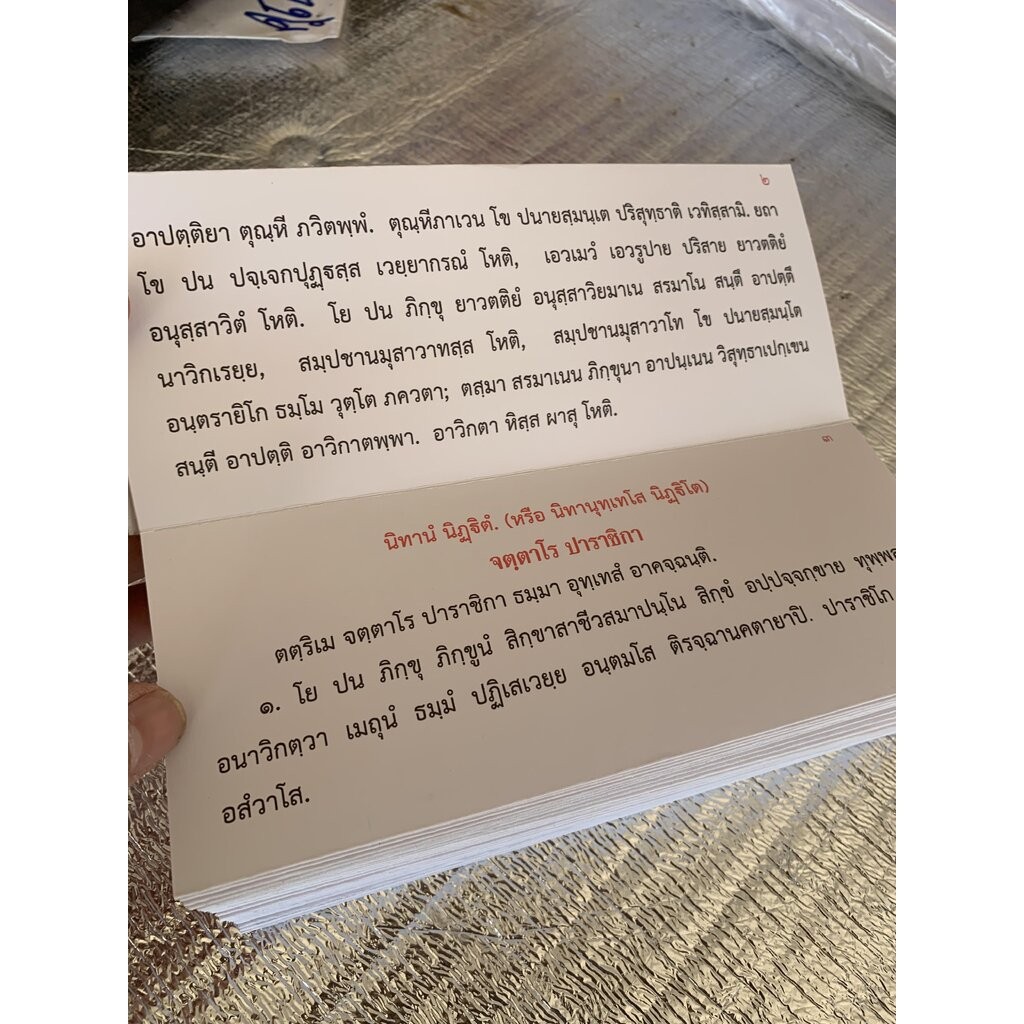 ๒
อาปตฺติยา ตุณฺหี ภวิตพฺพํ. ตุณฺหีภาเวน โข ปนายสฺมนฺเต ปริสุทฺธาติ เวทิสฺสามิ. ยถา
โข ปน ปจฺเจกปุฏฺฐสฺส เวยฺยากรณํ โหติ, เอวเมวํ เอวรูปาย ปริสาย ยาวตติยํ
อนุสฺสาวิตํ โหติ. โย ปน ภิกฺขุ ยาวตติยํ อนุสฺสาวิยมาเน สรมาโน สนฺตึ อาปตฺตึ
นาวิกเรยฺย, สมฺปชานมุสาวาทสฺส โหติ, สมฺปชานมุสาวาโท โข ปนายสฺมนฺโต
อนฺตรายิโก ธมฺโม วุตฺโต ภควตา; ตสฺมา สรมาเนน ภิกฺขุนา อาปนฺเนน วิสุทฺธาเปกฺเขน
สนฺตี อาปตฺติ อาวิกาตพฺพา. อาวิกตา หิสฺส ผาสุ โหติ.
๓
นิทานํ นิฏฺฐิตํ. (หรือ นิทานุทฺเทโส นิฏฺฐิโต)
จตฺตาโร ปาราชิกา
ตตฺริเม จตฺตาโร ปาราชิกา ธมฺมา อุทฺเทสํ อาคจฺฉนฺติ.
๑. โย ปน ภิกฺขุ ภิกฺขูนํ สิกฺขาสาชีวสมาปนฺโน สิกฺขํ อปฺปจฺจกฺขาย
อนาวิกตฺวา เมถุนํ ธมฺมํ ปฏิเสเวยฺย อนฺตมโส ติรจฺฉานคตายาปิ. ปาราชิโก
อสํวาโส.